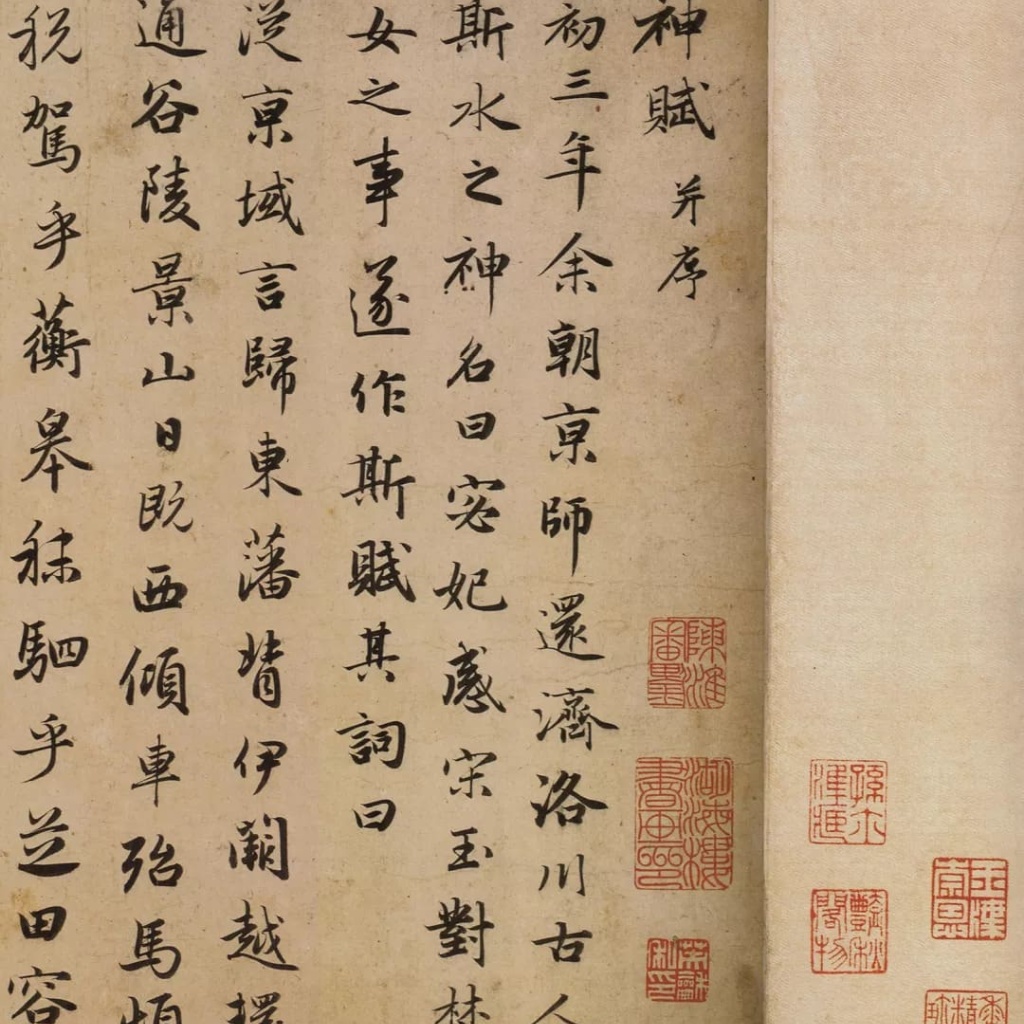 神賦 并序
初三年余朝亰師還濟洛川古人
斯水之神名曰宓妃感宋玉對楚
女之事遂作斯賦其詞曰
從亰域言歸東藩背伊闕越轘
通谷陵景山日既西傾車殆馬煩
税駕乎蘅皋秣駟乎芝田容